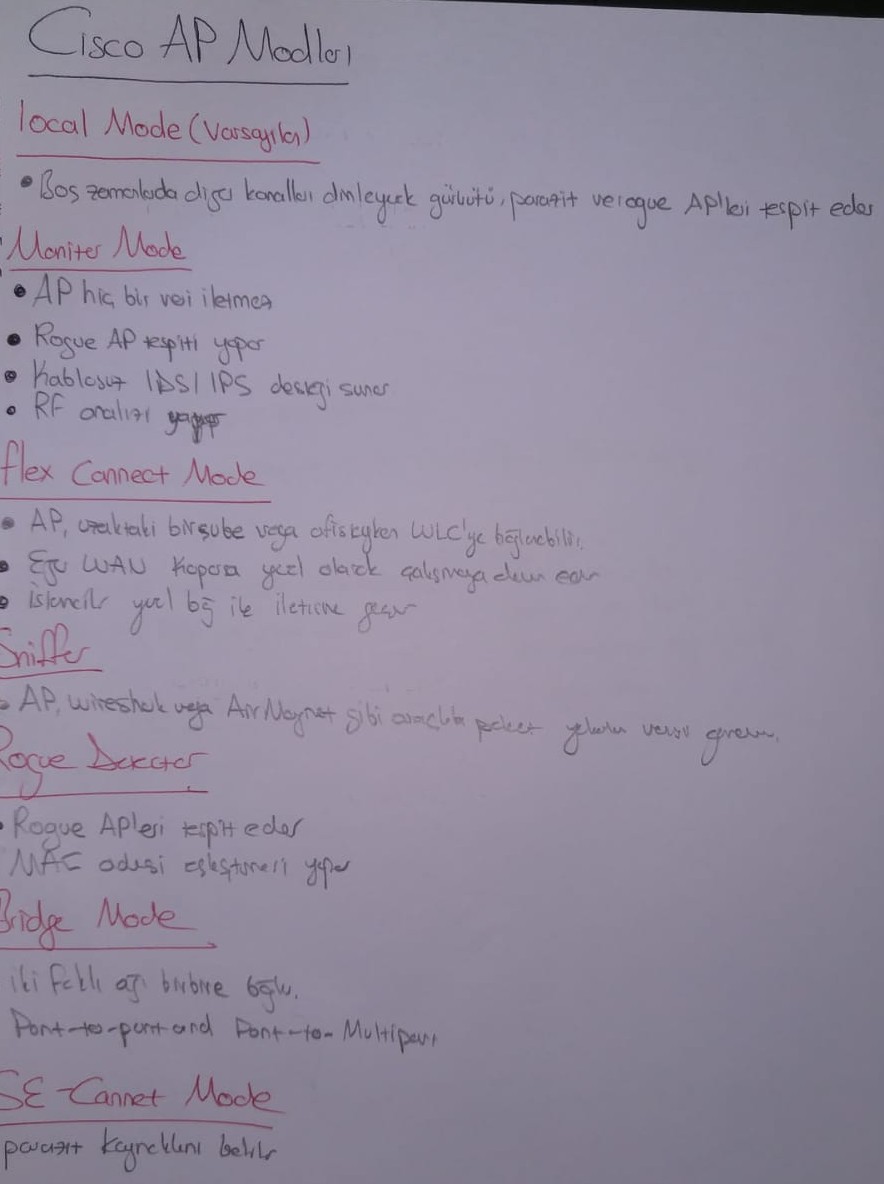 Cisco AP Modları
local Mode (Varsayılan)
• Boş zamanlarda diğer kanalları dinleyerek gürültü, parazit ve rogue AP'leri tespit eder
Moniter Mode
• AP hiç bir veri iletmez
• Rogue AP tespiti yapar
• Kablosuz IDS/IPS desteği sunar
• RF analizi yapar
flex Connect Mode
• AP, uzaktaki bir şube veya ofisteyken WLC'ye bağlanabilir.
• Eğer WAN koparsa yerel olarak çalışmaya devam eder
• İstemciler yerel ağ ile iletişime geçer
Sniffer
• AP, wireshark veya AirMagnet gibi araçlarla paket
Rogue Detector
• Rogue APleri tespit eder
MAC adresi eşleştirmesi yapar
Bridge Mode
iki farklı ağı birbirine bağlar.
Point-to-point and Point-to-Multipoint
SE-Connet Mode
parazit kaynaklarını belirler